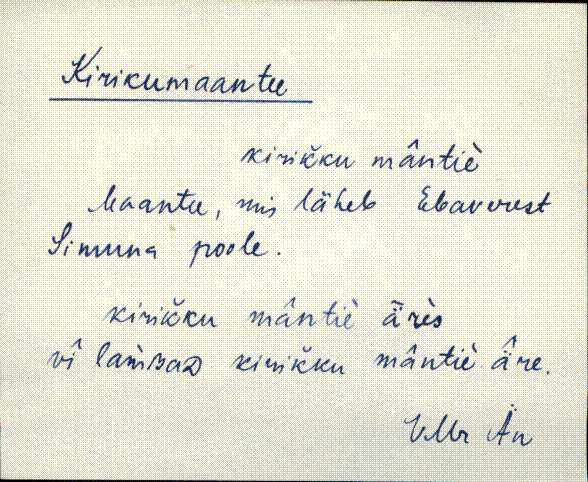 Kirikumaantee
kirikku mântiè
Maantee, mis läheb Ebaverest
Simuna poole.
kirikku mântiè ä̂rès
vî lam̀baᴅ kirikku mântiè ä̂re.
VMr Än